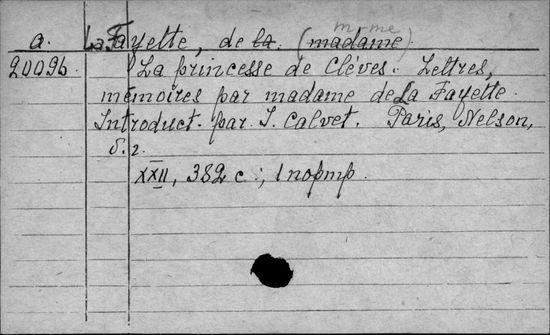 m-me
a. La Fayette, de la. (madame).
20096. La princesse de Clèves. Lettres,
mémoires par madame de La Fayette.
Introduct. par J. Calvet. Paris, Nelson,
s. a.
XXII, 382 c.; 1 портр.